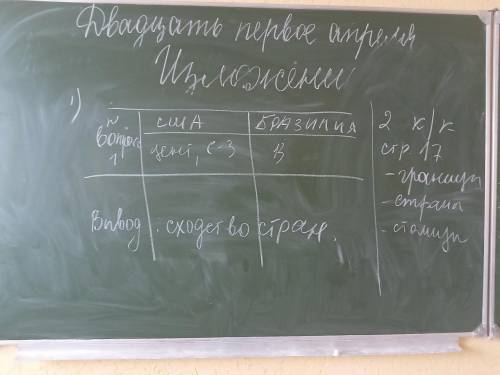 Двадцать первое апреля
Изложение
1)
№ вопроса
США
БРАЗИЛИЯ
1
цент, С-З
В
Вывод: сходство стран.
2 к/к
стр 17
- границы
- страна
- столицы